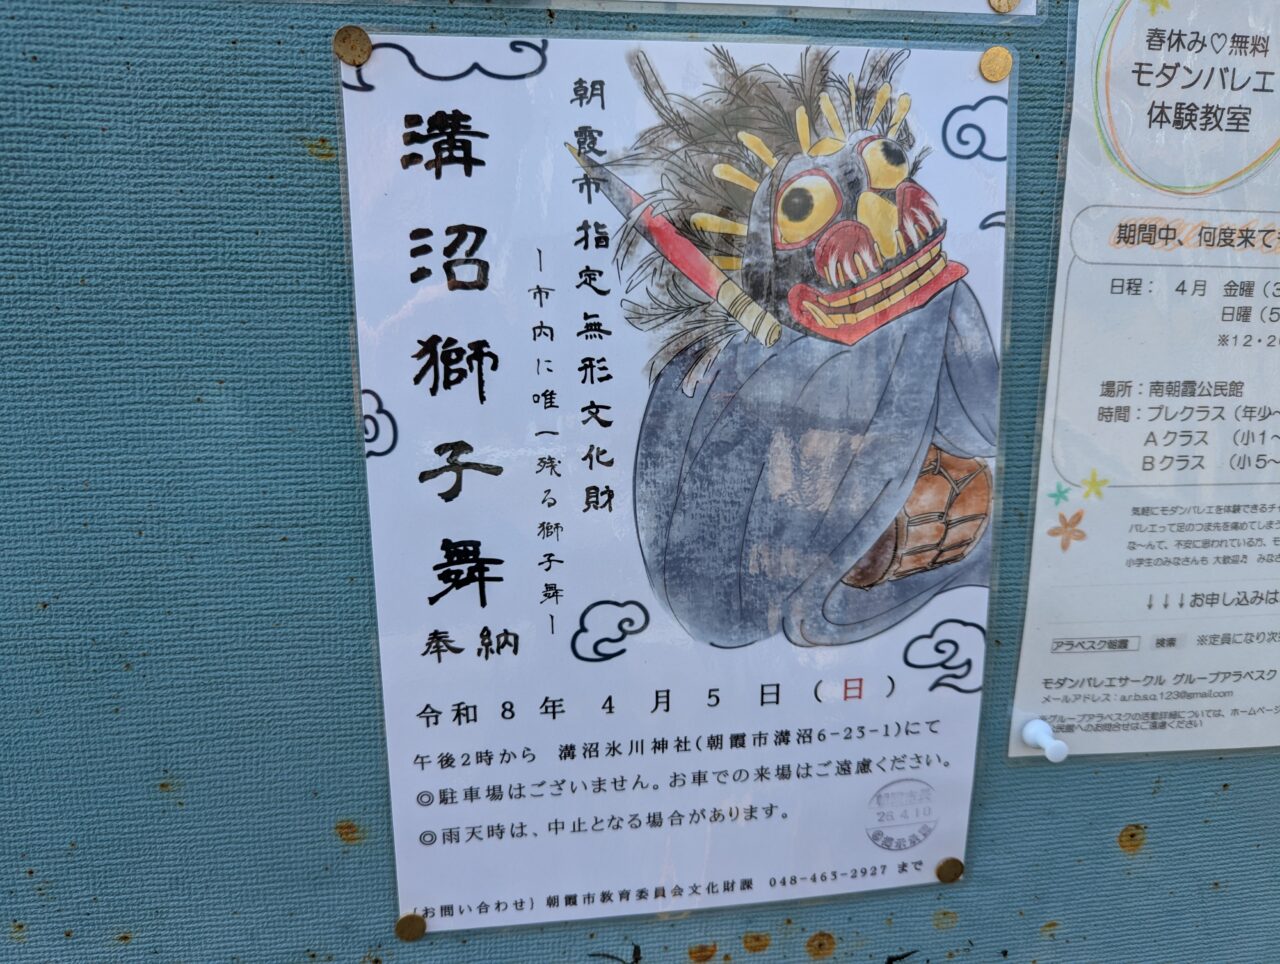 朝霞市指定無形文化財
―市内に唯一残る獅子舞―
溝沼獅子舞
奉納
令和8年4月5日(日)
午後2時から 溝沼氷川神社(朝霞市溝沼6-23-1)にて
◎駐車場はございません。お車での来場はご遠慮ください。
◎雨天時は、中止となる場合があります。
26.4.10
(お問い合わせ) 朝霞市教育委員会文化財課 048-463-2927 まで
春休み♡無料
モダンバレエ
体験教室
期間中、何度来て
日程： 4月 金曜
日曜
※12・2
場所：南朝霞公民館
時間：プレクラス（年少～
Aクラス （小1～
Bクラス （小5～
気軽にモダンバレエを体験できるチ
バレエって足のつま先を痛めてしま
な～んて、不安に思われている方、モ
小学生のみなさんも 大歓迎♬ みな
↓↓↓お申し込みは
アラベスク朝霞 検索 ※定員になり次
モダンバレエサークル グループアラベスク
メールアドレス：a.r.b.s.q.123@gmail.com
※グループアラベスクの活動詳細については、ホームペー
民館へのお問合せはご遠慮ください